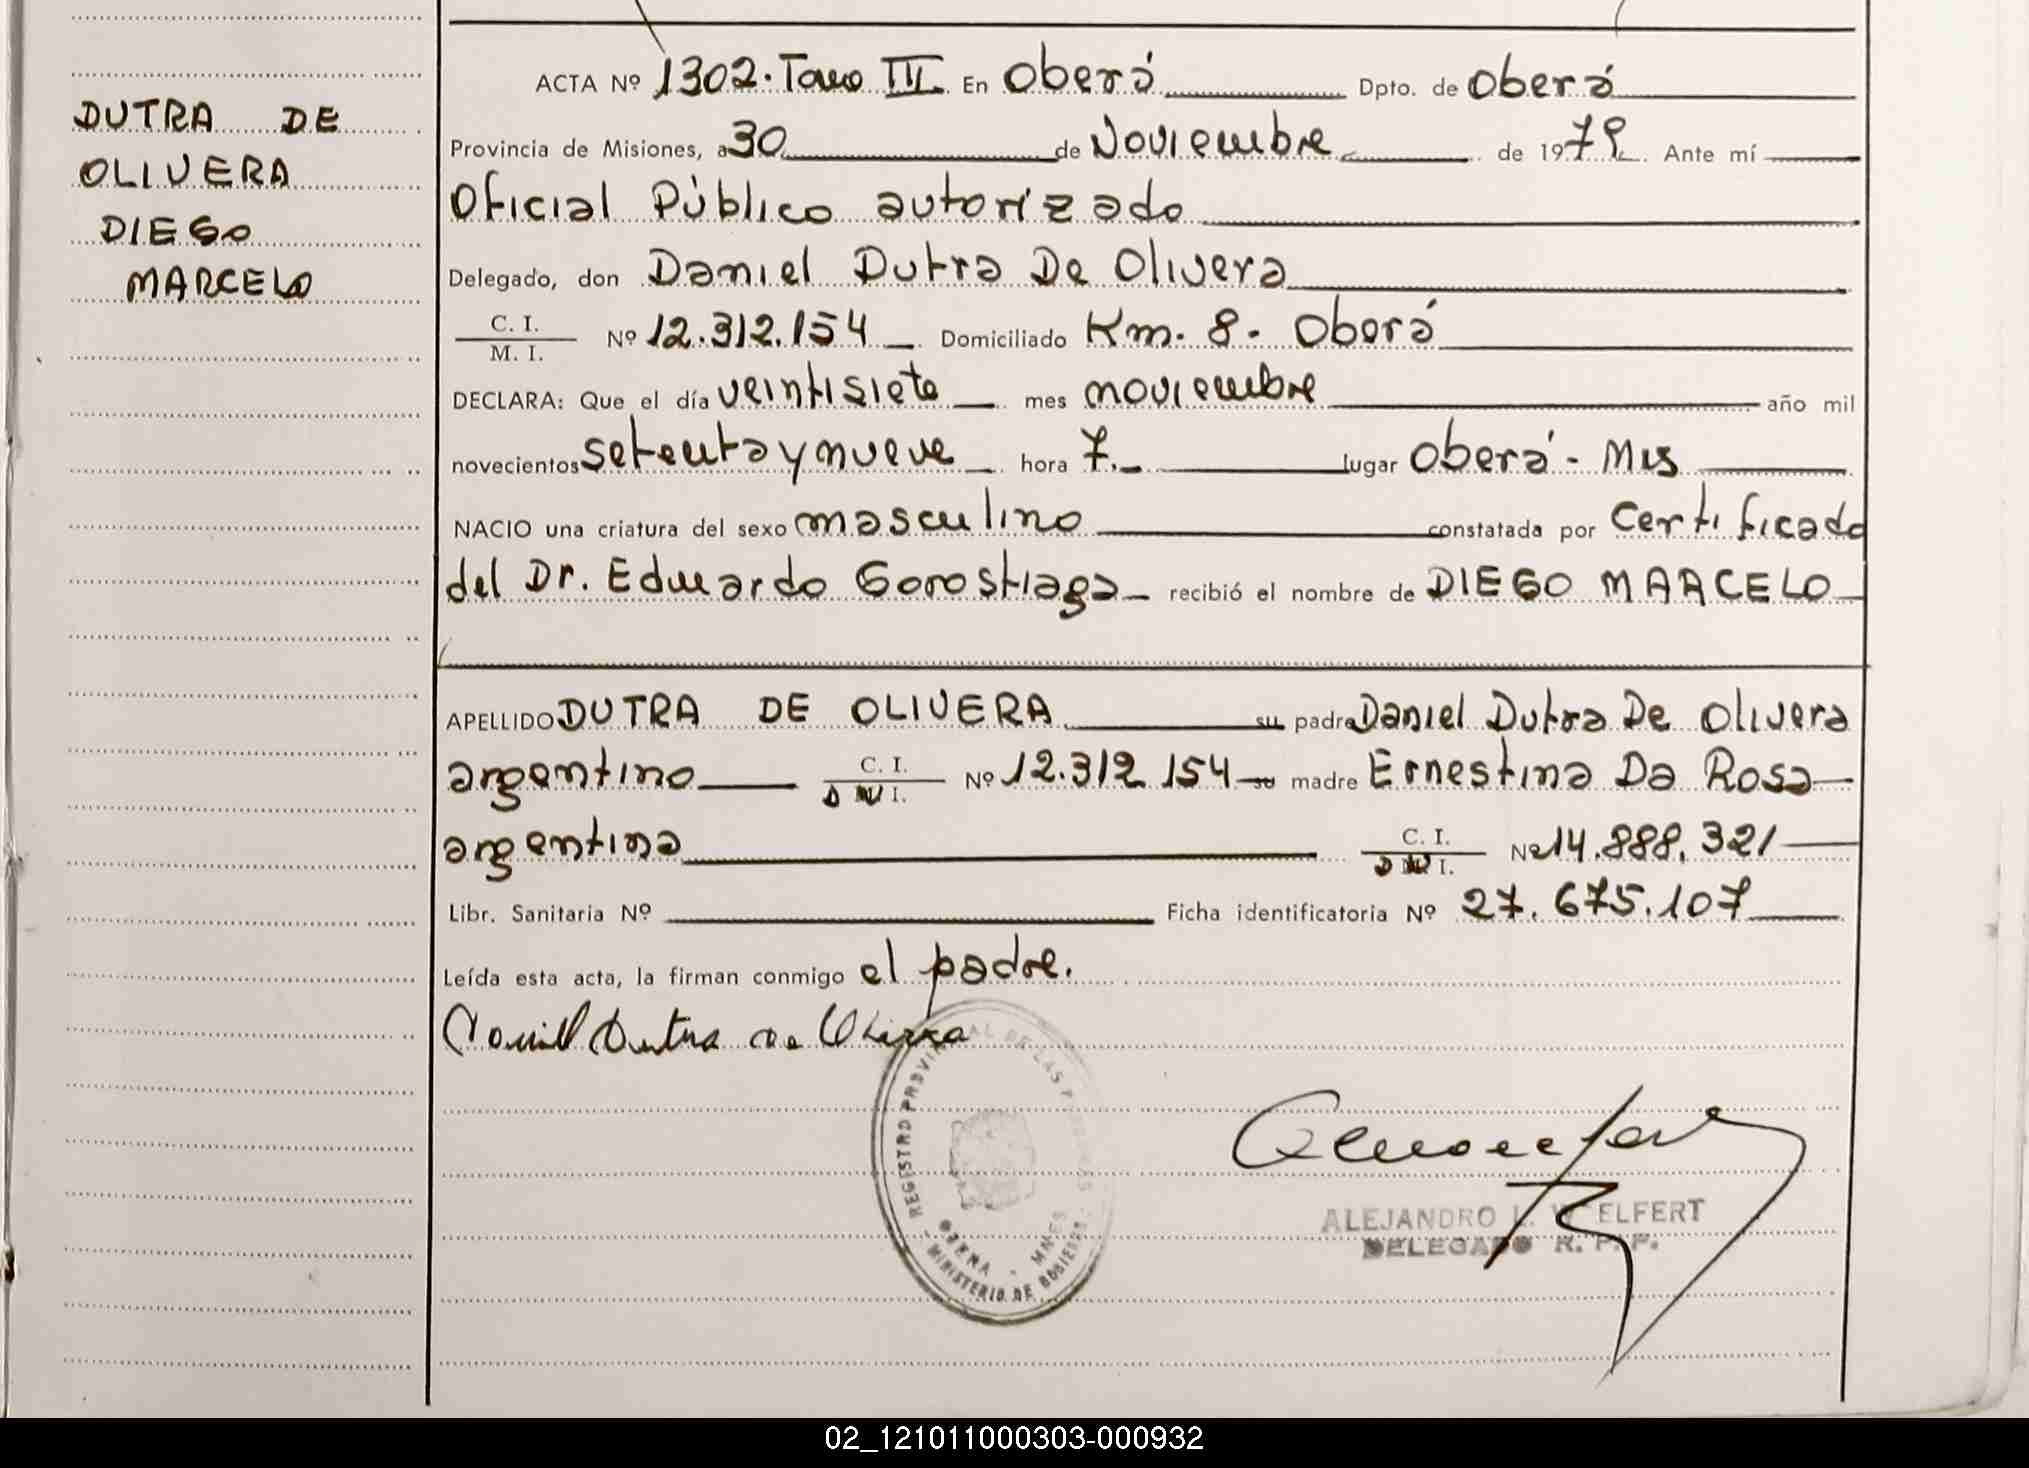 DUTRA DE
OLIVERA
DIEGO
MARCELO
ACTA Nº 1302. Tomo III En Oberá Dpto. de Oberá
Provincia de Misiones, a 30 de Noviembre de 1979. Ante mí
Oficial Público autorizado
Delegado, don Daniel Dutra De Olivera
C. I.
M. I. Nº 12.312.154 Domiciliado Km. 8. Oberá
DECLARA: Que el día veintisiete mes noviembre año mil
novecientos setenta y nueve hora 7. lugar Oberá - Mns
NACIO una criatura del sexo masculino constatada por Certificado
del Dr. Eduardo Gorostiaga recibió el nombre de DIEGO MARCELO
APELLIDO DUTRA DE OLIVERA su padre Daniel Dutra De Olivera
argentino C. I. D N I. Nº 12.312 154 su madre Ernestina Da Rosa
argentina C. I. D N I. Nº 14.888.321
Libr. Sanitaria Nº Ficha identificatoria Nº 27.675.107
Leída esta acta, la firman conmigo el padre.
Daniel Dutra De Olivera
REGISTRO PROVINCIAL DE LAS PERSONAS
OBERA - MNES
MINISTERIO DE GOBIERNO
ALEJANDRO L. WELFERT
DELEGADO R. P. P.
02_121011000303-000932